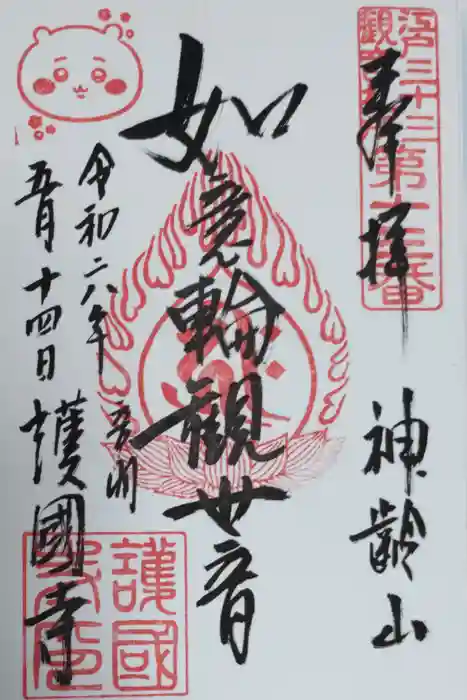 奉拝
神齢山
江戸三十三
観音札所
第十三番
如意輪觀世音
令和六年
五月十四日
音羽
護國寺
護國
寺印